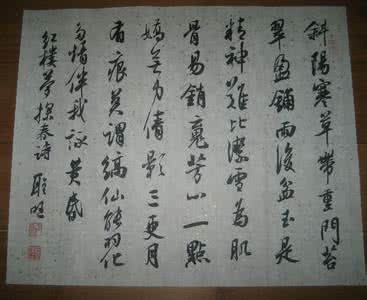 斜陽寒草帶重門苔
翠盈鋪雨後盆玉是
精神難比潔雪為肌
骨易銷魂芳心一點
嬌無力倩影三更月
有痕莫謂縞仙能羽化
多情伴我詠黃昏
紅樓夢探春詩